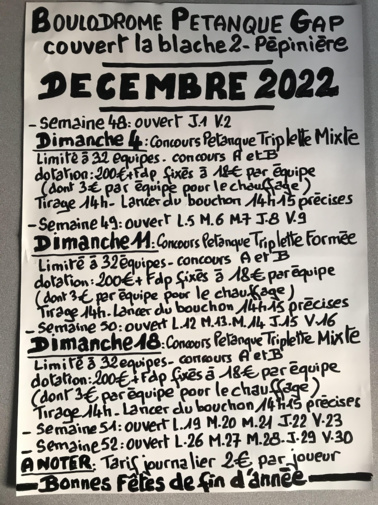 BOULODROME PETANQUE GAP
couvert la blache 2 - Pépinière
DECEMBRE 2022
- Semaine 48: ouvert J.1 V.2
Dimanche 4: Concours Petanque Triplette Mixte
Limité à 32 equipes - concours A et B
dotation: 200€ + Fdp fixés à 18€ par équipe
(dont 3€ par équipe pour le chauffage)
Tirage 14h - Lancer du bouchon 14h15 précises
- Semaine 49: ouvert L.5 M.6 M.7 J.8 V.9
Dimanche 11: Concours Petanque Triplette Formée
Limité à 32 équipes - concours A et B
dotation: 200€ + Fdp fixés à 18€ par équipe
(dont 3€ par équipe pour le chauffage)
Tirage 14h. Lancer du bouchon 14h15 précises
- Semaine 50: ouvert L.12 M.13 M.14 J.15 V.16
Dimanche 18: Concours Petanque Triplette Mixte
Limité à 32 equipes - concours A et B
dotation: 200€ + Fdp fixés à 18€ par équipe
(dont 3€ par équipe pour le chauffage)
Tirage 14h - Lancer du bouchon 14h15 précises
- Semaine 51: ouvert L.19 M.20 M.21 J.22 V.23
- Semaine 52: ouvert L.26 M.27 M.28 J.29 V.30
A NOTER: Tarif journalier 2€ par joueur
Bonnes Fêtes de fin d'année